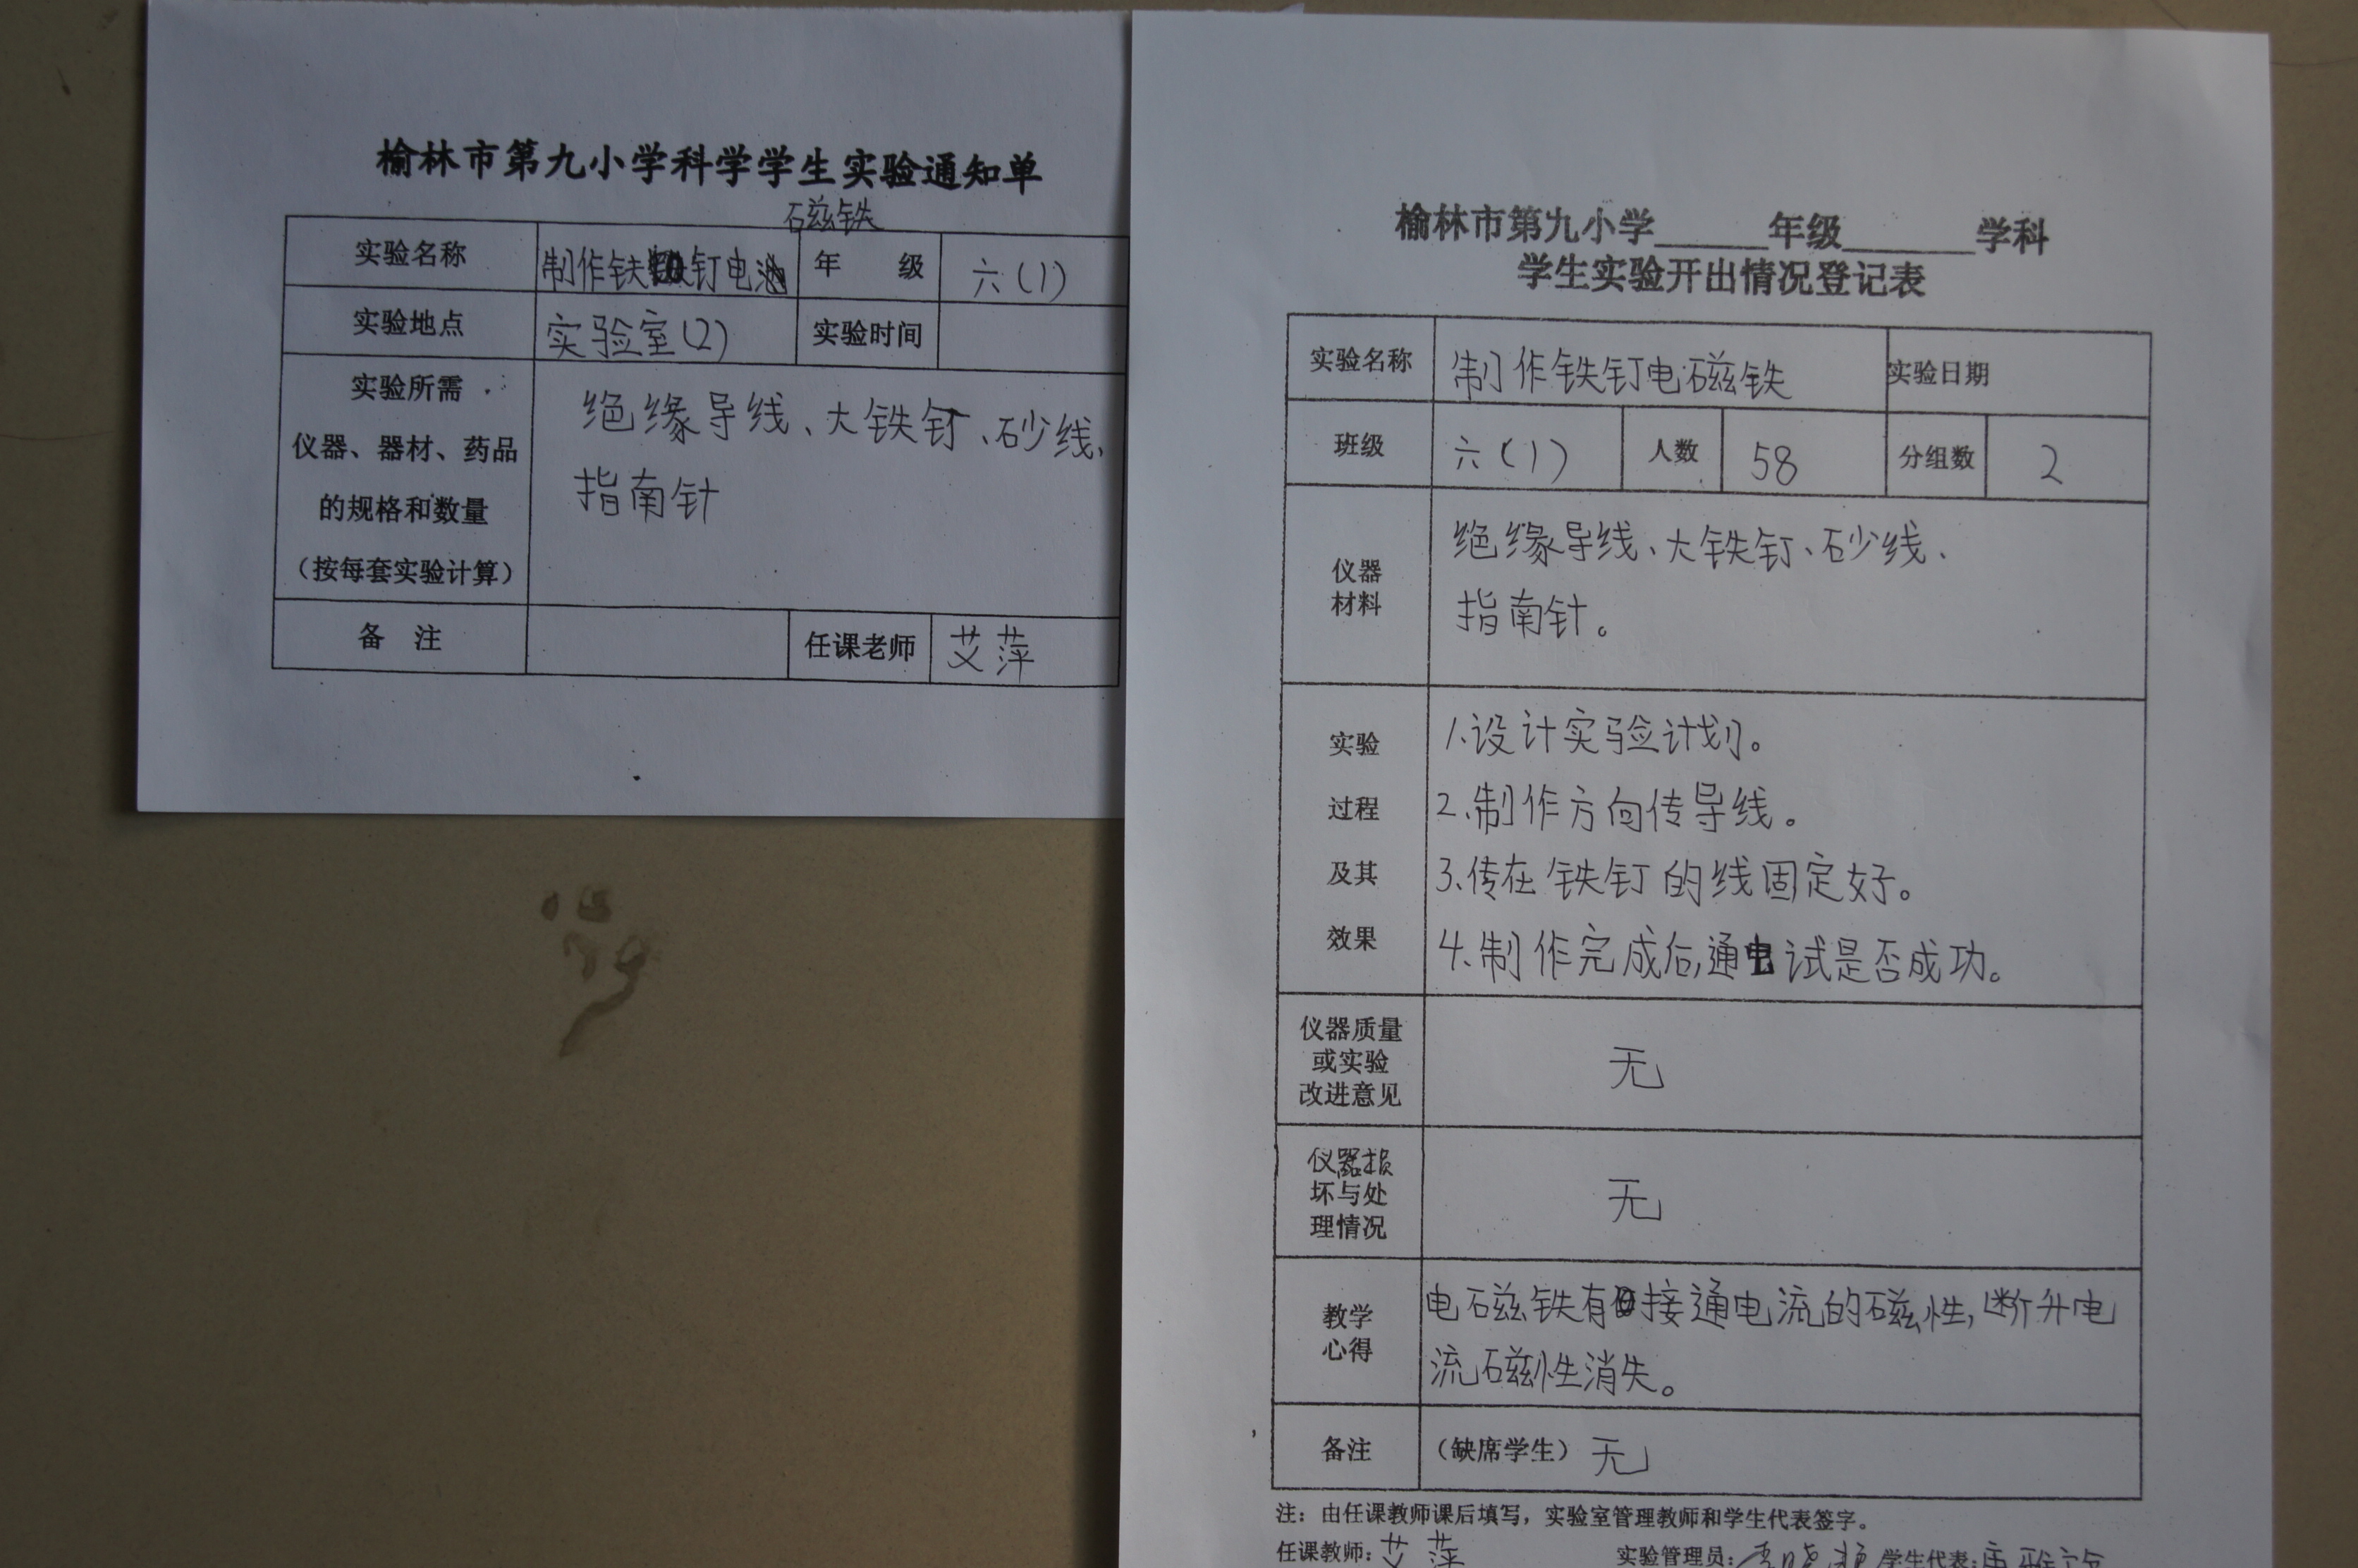 榆林市第九小学科学学生实验通知单
磁铁
实验名称 制作铁钉电 年 级 六(1)
实验地点 实验室(2) 实验时间
实验所需
仪器、器材、药品
的规格和数量
(按每套实验计算)
绝缘导线、大铁钉、砂线、
指南针
备 注 任课老师 艾萍
榆林市第九小学______年级______学科
学生实验开出情况登记表
实验名称 制作铁钉电磁铁 实验日期
班级 六(1) 人数 58 分组数 2
仪器
材料
绝缘导线、大铁钉、砂线、
指南针。
实验
过程
及其
效果
1.设计实验计划。
2.制作方向传导线。
3.传在铁钉的线固定好。
4.制作完成后,通电试是否成功。
仪器质量
或实验
改进意见
无
仪器损
坏与处
理情况
无
教学
心得
电磁铁有接通电流的磁性,断开电
流磁性消失。
备注 (缺席学生) 无
注:由任课教师课后填写,实验室管理教师和学生代表签字。
任课教师:艾萍 实验管理员: 学生代表: